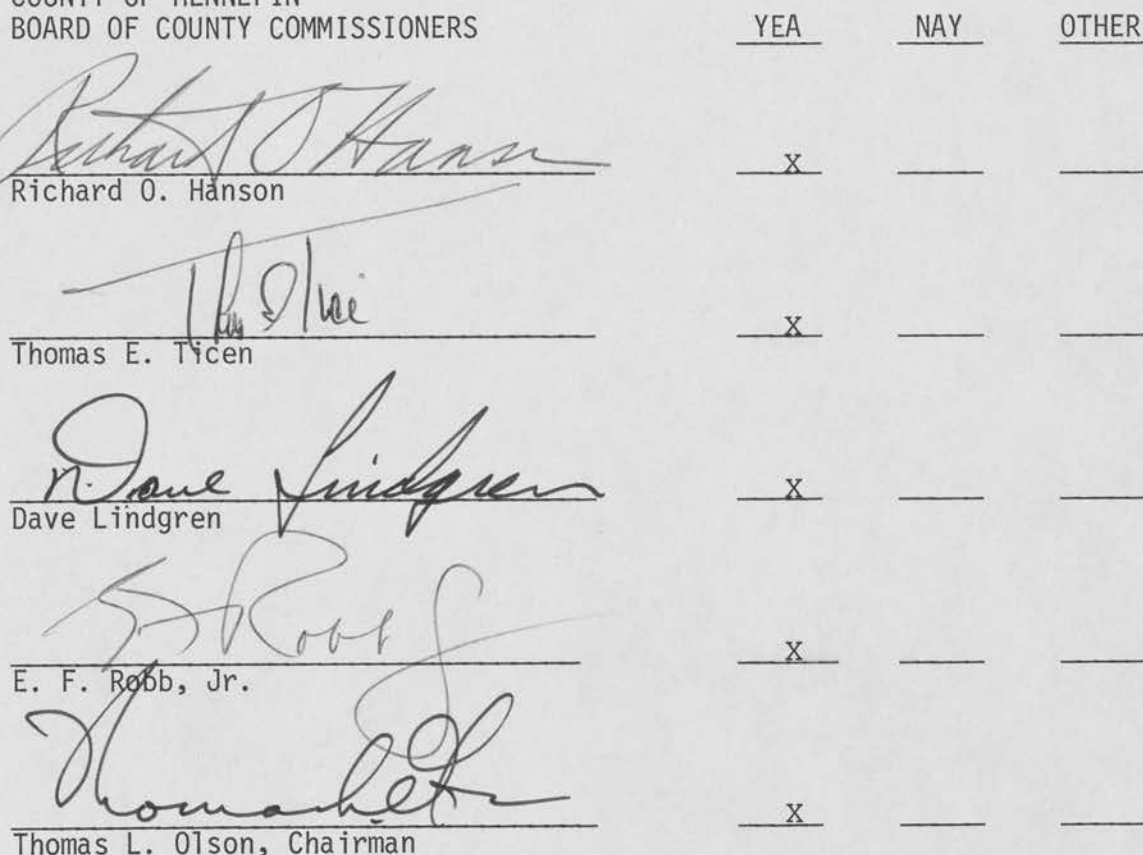 COUNTY OF HENNEPIN
BOARD OF COUNTY COMMISSIONERS YEA NAY OTHER
Richard O Hanson
X
Richard O. Hanson
X
Thomas E. Ticen
Dave Lindgren
X
Dave Lindgren
E F Robb Jr
X
E. F. Robb, Jr.
Thomas L Olson
X
Thomas L. Olson, Chairman